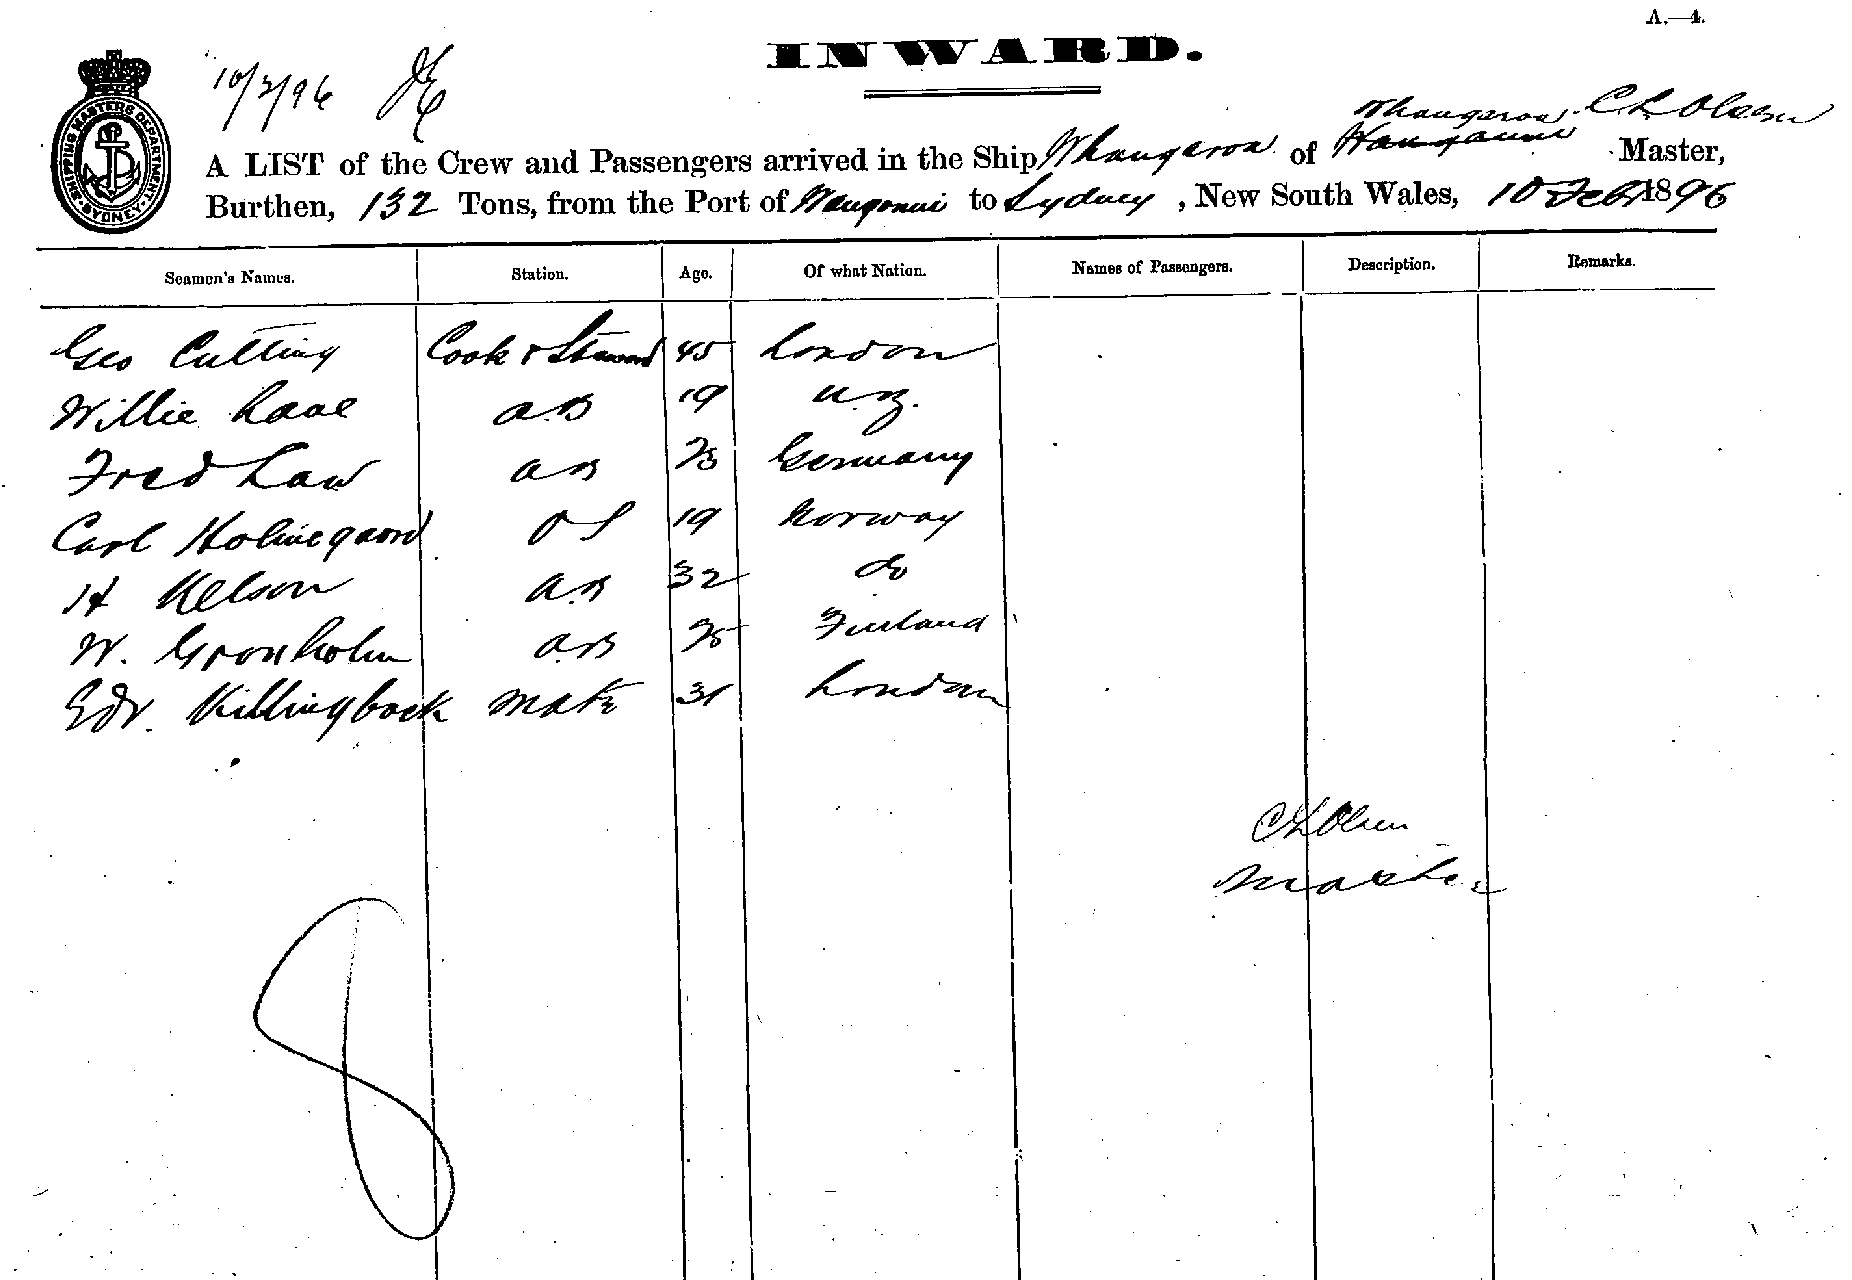 A.—4.
INWARD.
10/2/96
SHIPPING MASTERS DEPARTMENT
SYDNEY
Whangaroa C L Olsen
A LIST of the Crew and Passengers arrived in the Ship Whangaroa of Master,
Burthen, 132 Tons, from the Port of to Sydney, New South Wales, 10 Feb 1896
Seamen's Names. Station. Age. Of what Nation. Names of Passengers. Description. Remarks.
Geo Cutting Cook & Steward 45 London
Willie Lane AB 19 N.Z.
Fred Law AB Germany
Carl Holmegaard OS 19 Norway
H Nelson AB 32 do
W. Gronholm AB 25 Finland
Edr. Killingback Mate 31 London
C L Olsen
Master
8